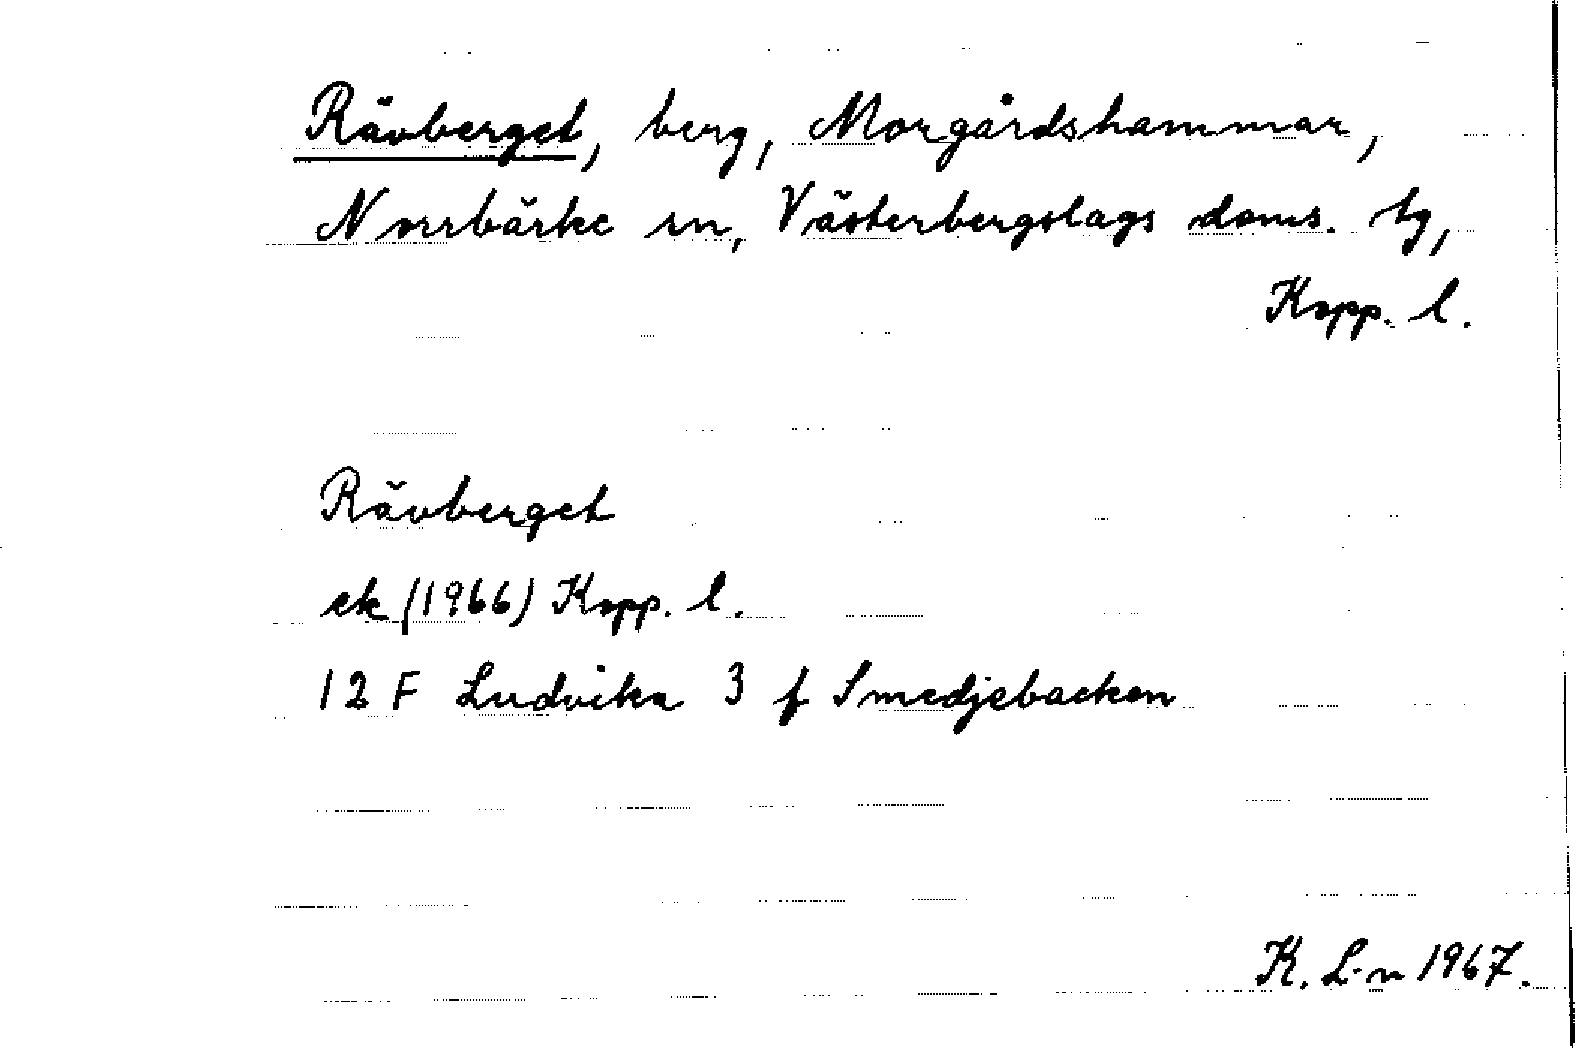 Rävberget, berg, Morgårdshammar,
Norrbärke sn, Västerbergslags doms. tg,
Kopp. l.
Rävberget
ek (1966) Kopp. l.
12 F Ludvika 3 f Smedjebacken
K. L-n 1967.